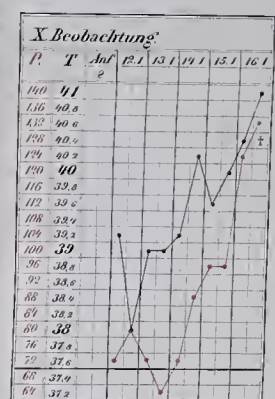 X. Beobachtung.
P. T. Anf 12.I 13.I 14.I 15.I 16.I
140 41
136 40,8
132 40,6
128 40,4
124 40,2
120 40
116 39,8
112 39,6
108 39,4
104 39,2
100 39
96 38,8
92 38,6
88 38,4
84 38,2
80 38
76 37,8
72 37,6
68 37,4
64 37,2
†